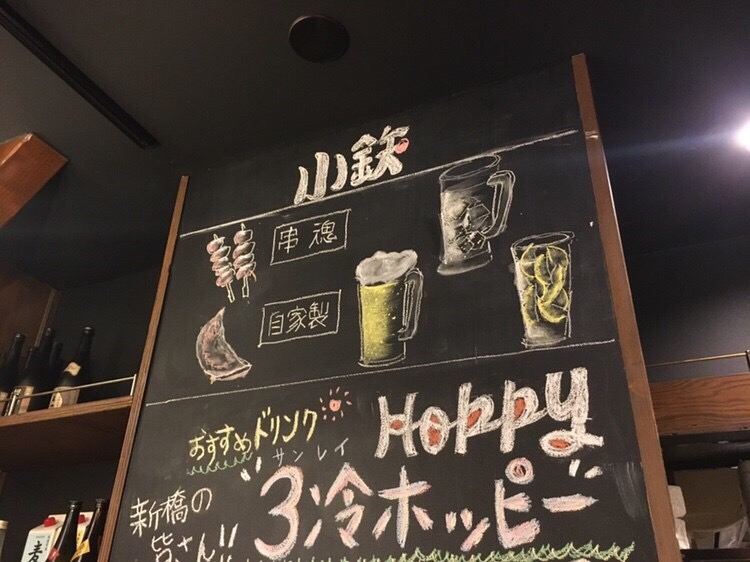 小鉄
串魂
自家製
おすすめドリンク
Hoppy
サンレイ
"3冷ホッピー"
新橋の
皆さん!!